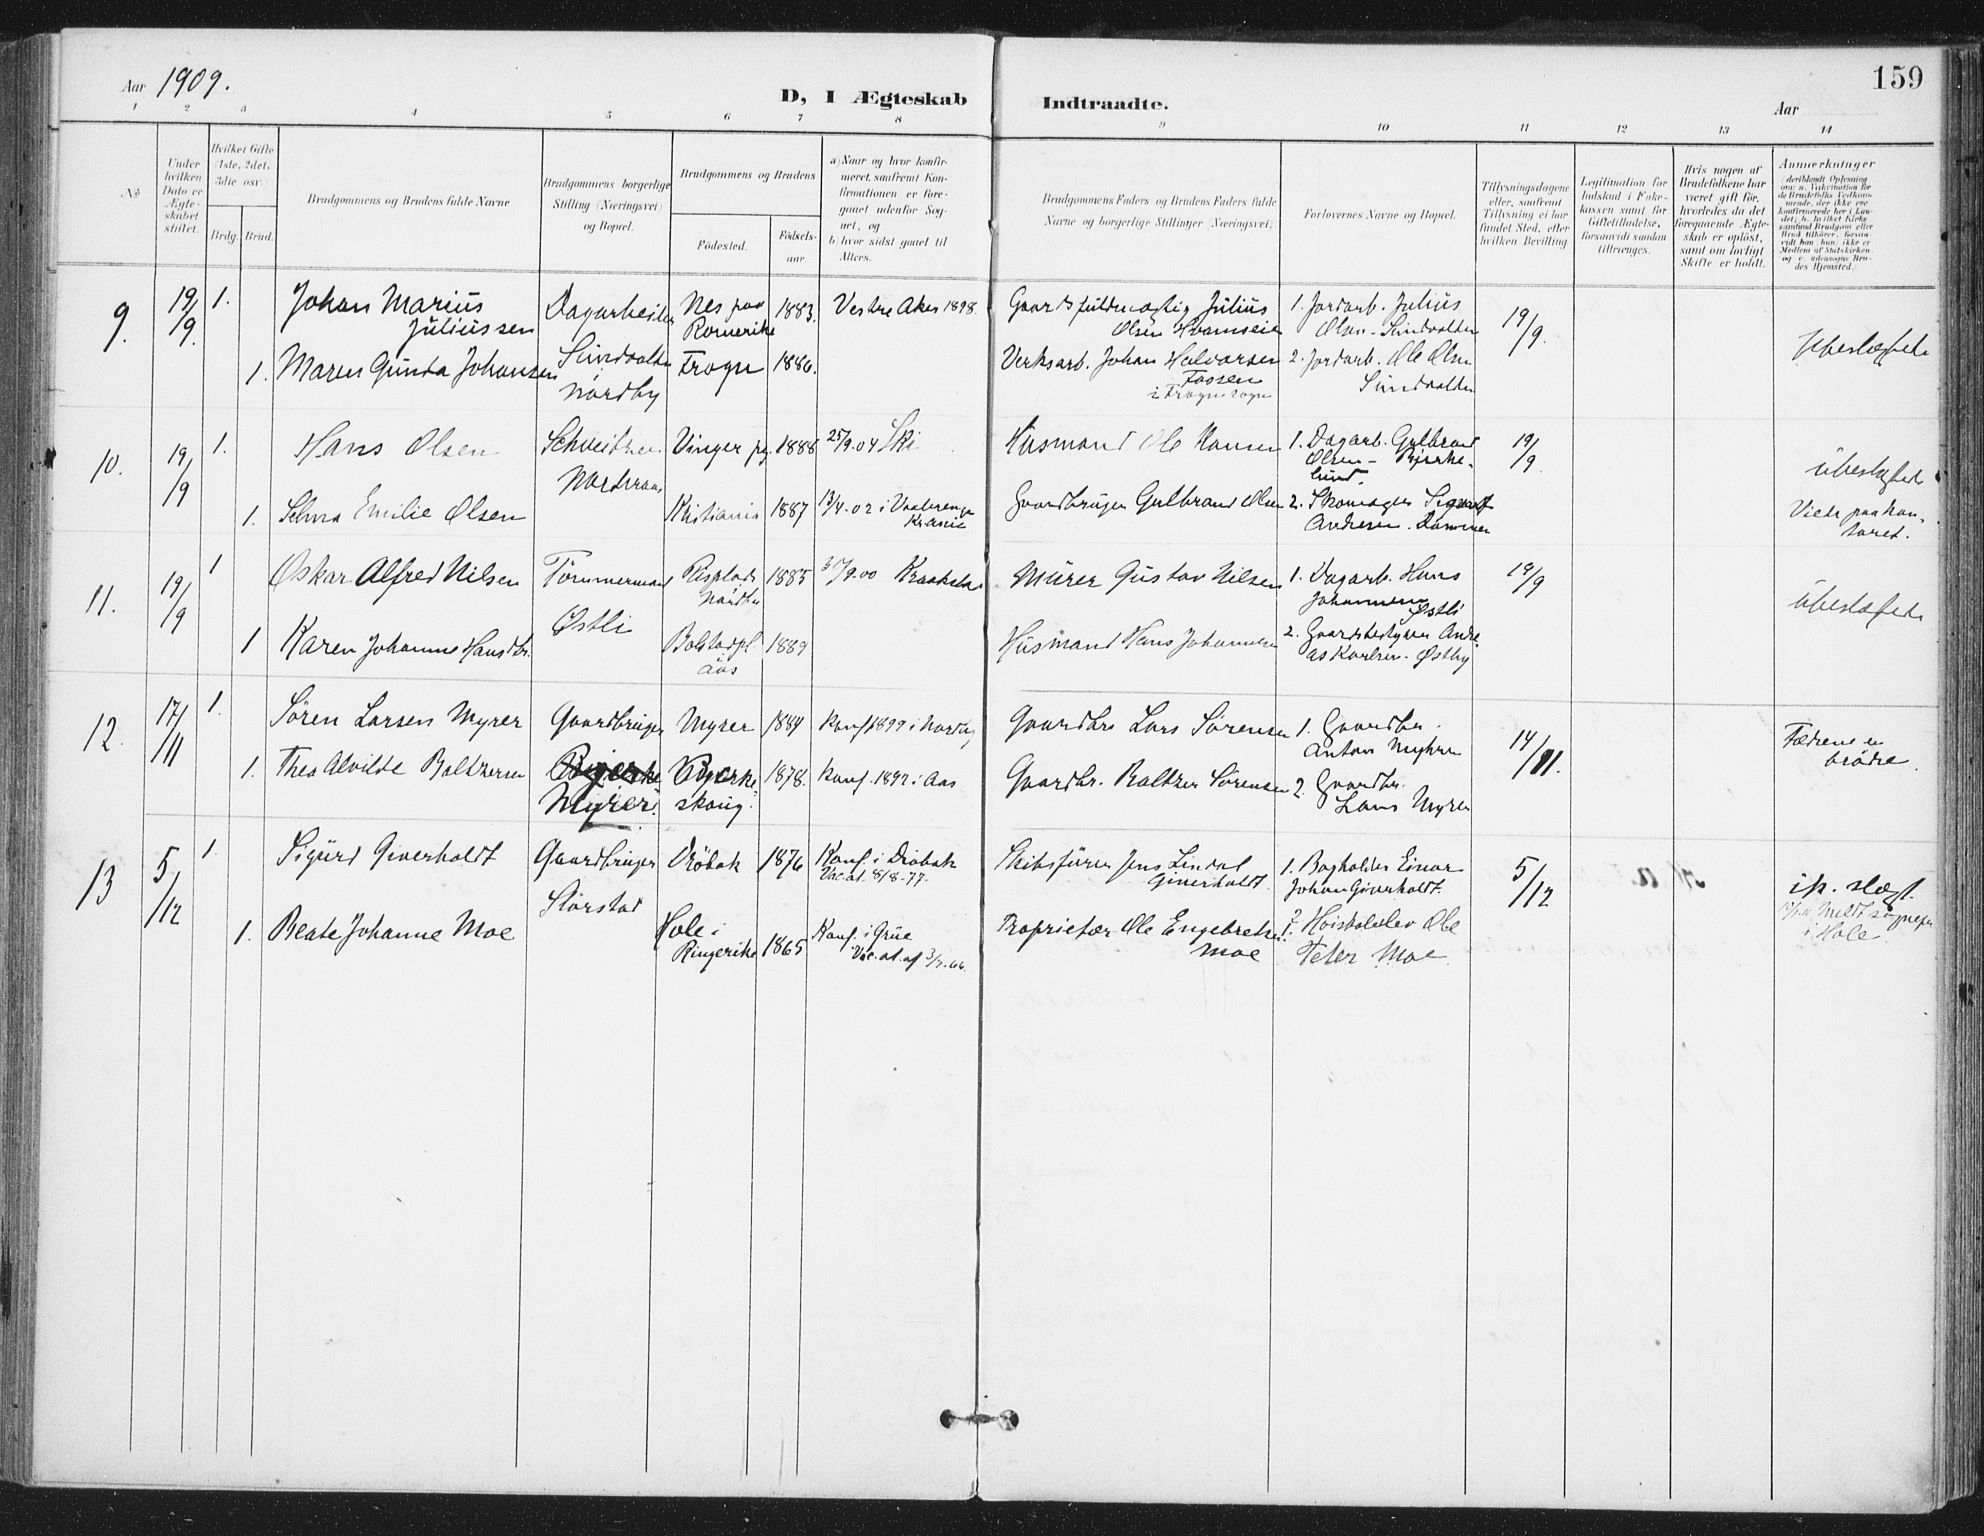 Aar 1909.
D, I Ægteskab Indtraadte.
Aar
159
1 2 3 4 5 6 7 8 9 10 11 12 13 14
No.
Under hvilken Dato er Ægteskabet stiftet.
Hvilket Gifte (1ste, 2det, 3die osv.)
Brdg. Brud.
Brudgommens og Brudens fulde Navne
Brudgommens borgerlige Stilling (Næringsvei) og Bopæl.
Brudgommens og Brudens
Födested.
Födselsaar.
a) Naar og hvor konfirmeret, saafremt Konfirmationen er foregaaet udenfor Sognet, og
b) hvor sidst gaaet til Alters.
Brudgommens Faders og Brudens Faders fulde Navne og borgerlige Stillinger (Næringsvei)
Forlovernes Navne og Bopæl.
Tillysningsdagene eller, saafremt Tillysning ei har fundet Sted, efter hvilken Bevilling
Legitimation for Indskud i Enkekassen samt for Giftetilladelse, forsaavidt saadan tiltrænges.
Hvis nogen af Brudefolkene har været gift før, hvorledes da det foregaaende Ægteskab er oplöst, samt om lovligt Skifte er holdt.
Anmærkninger
9. 19/9. 1. Johan Marius Juliussen
Dagarbeider Sundvolten Nordby
Nes paa Romerike 1883. Vestre Aker 1898
Gaardsfuldmægtig Julius Olsen
1. Jordarb. Julius Olsen - Sundvolten
19/9.
Ubeslægtede
1. Maren Gunda Johansen
Frogn 1886.
Verksarb. Johan Halvorsen Fossen i Frogn sogn
2. Jordarb. Ole Olsen Sundvolten
10. 19/9 1. Hans Olsen
Schveitzer
Vinger pg. 1888 25/9.04 Ski
Husmand Ole Hansen
1. Dagarb. Gulbrand Olsen - Bjerkelund.
19/9.
Ubeslægtede
1. Selma Emilie Olsen
Kristiania 1887 13/4.02 i Vaalerengen Krania
Gaardbruger Gulbrand Olsen
2. Skomager Andersen.
Viede paa kontoret.
11. 19/9 1 Oskar Alfred Nilsen
Tömmermand Østli
Nordby 1885 30/9.00 Kraakstad
Murer Gustav Nilsen
1. Dagarb. Hans Johannesen Østli
19/9
Ubeslægtede
1 Karen Johanne Hansdtr.
Bolstadpl Aas 1889
Husmand Hans Johannesen
2. Gaardsbestyrer Andreas Karlsen - Østby
12. 17/11 1. Sören Larsen Myrer
Gaardbruger Myrer.
Myrer 1884 Konf. 1899 i Nordby
Gaardbr. Lars Sørensen
1. Gaardbr. Anton Myhrer
14/11.
Fædrene er brödre.
1. Thea Alvilde Baltzersen
Bjerkeskoug. 1878. Konf. 1892 i Aas
Gaardbr. Baltzer Sørensen
2. Gaardbr. Lars Myrer
13 5/12 1. Sigurd Giverholdt
Gaardbruger Storstad
Dröbak 1876 Konf. i Dröbak
Vac. at. 8/8-77.
Skibsförer Jens Lindal Giverholdt.
1. Bogholder Einar Johan Giverholdt.
5/12
ik. slægt.
Meldt sognepr. i Hole.
1. Beate Johanne Moe
Hole i Ringerike 1865 Konf. i Grue
Vac. at. af 3/7.66.
Proprietær Ole Engebretsen Moe
2. Höiskolelev Ole Peter Moe